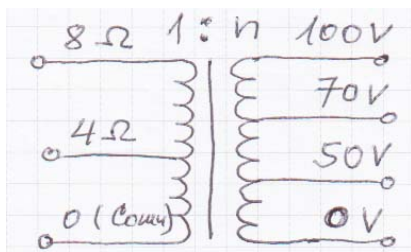 8 Ω 1:n 100V
70V
4 Ω
50V
0 (Com) 0V